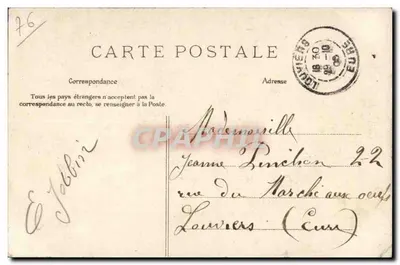 76
CARTE POSTALE
Correspondance
Adresse
Tous les pays étrangers n'acceptent pas la
correspondance au recto, se renseigner à la Poste
LOUVIERS
18 30
EURE
Mademoiselle
Jeanne Pinchon 22
rue du Marché aux oeufs
Louviers (Eure)
CARTE-POSTALE